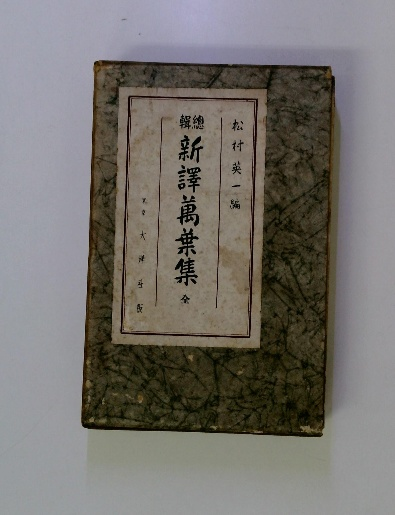 松村英一編
總輯
新譯萬葉集 全
東京 大洋社版